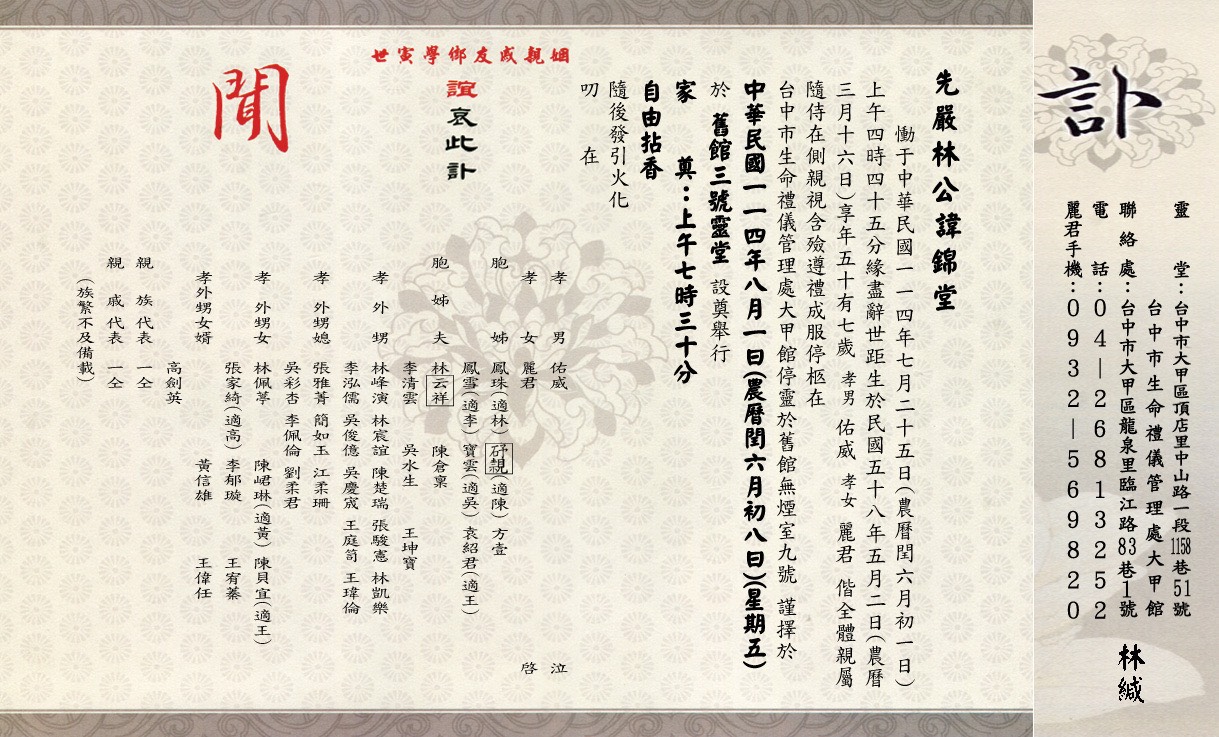 訃
靈堂：台中市大甲區頂店里中山路一段1158巷51號
台中市生命禮儀管理處大甲館
聯絡處：台中市大甲區龍泉里臨江路83巷1號
林緘
電話：04—26813252
麗君手機：0932—569820
先嚴林公諱錦堂
慟于中華民國一一四年七月二十五日(農曆閏六月初一日)
上午四時四十五分緣盡辭世距生於民國五十八年五月二日(農曆
三月十六日)享年五十有七歲 孝男 佑威 孝女 麗君 偕全體親屬
隨侍在側親視含殮遵禮成服停柩在
台中市生命禮儀管理處大甲館停靈於舊館無煙室九號 謹擇於
中華民國一一四年八月一日(農曆閏六月初八日)(星期五)
於 舊館三號靈堂 設奠舉行
家 奠：上午七時三十分
自由拈香
隨後發引火化
叨 在
姻親戚友鄉學寅世
誼哀此訃
聞
孝男 佑威 泣
孝女 麗君 啓
胞姊 鳳珠(適林) 親(適陳) 方壹
鳳雪(適李) 寶雲(適吳) 袁紹君(適王)
胞姊夫 林云祥 陳倉稟
李清雲 吳水生 王坤寶
孝外甥 林峰演 林宸誼 陳楚瑞 張駿憲 林凱樂
李泓儒 吳俊億 吳慶宬 王庭笥 王瑋倫
孝外甥媳 張雅菁 簡如玉 江柔珊
吳彩杏 李佩倫 劉柔君
孝外甥女 林佩葶 陳峮琳(適黃) 陳貝宜(適王)
張家綺(適高) 李郁璇 王宥蓁
孝外甥女婿 黃信雄 王偉任
高劍英
親族代表 一仝
親戚代表 一仝
(族繁不及備載)